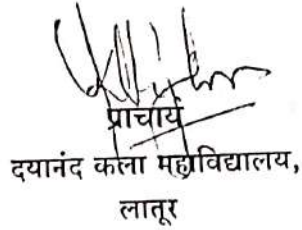 प्राचार्य
दयानंद कला महाविद्यालय,
लातूर